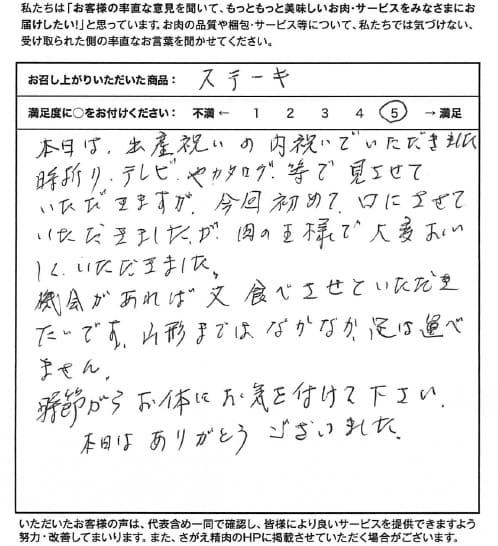 私たちは「お客様の率直な意見を聞いて、もっともっと美味しいお肉・サービスをみなさまにお
届けしたい!」と思っています。お肉の品質や梱包・サービス等について、私たちでは気づけない、
受け取られた側の率直なお言葉を聞かせてください。
お召し上がりいただいた商品： ステーキ
満足度に○をお付けください： 不満 ← 1 2 3 4 5 → 満足
本日は、出産祝いの内祝いでいただきました
時折り、テレビやカタログ等で見させて
いただきますが、今回初めて、口にさせて
いただきましたが、肉の王様で大変おい
しく、いただきました。
機会があれば又食べさせといただき
たいです。山形まではなかなか、足は運べ
ません。
時節がらお体にお気を付けて下さい。
本日はありがとうございました。
いただいたお客様の声は、代表含め一同で確認し、皆様により良いサービスを提供できますよう
努力・改善してまいります。また、さがえ精肉のHPに掲載させていただく場合がございます。